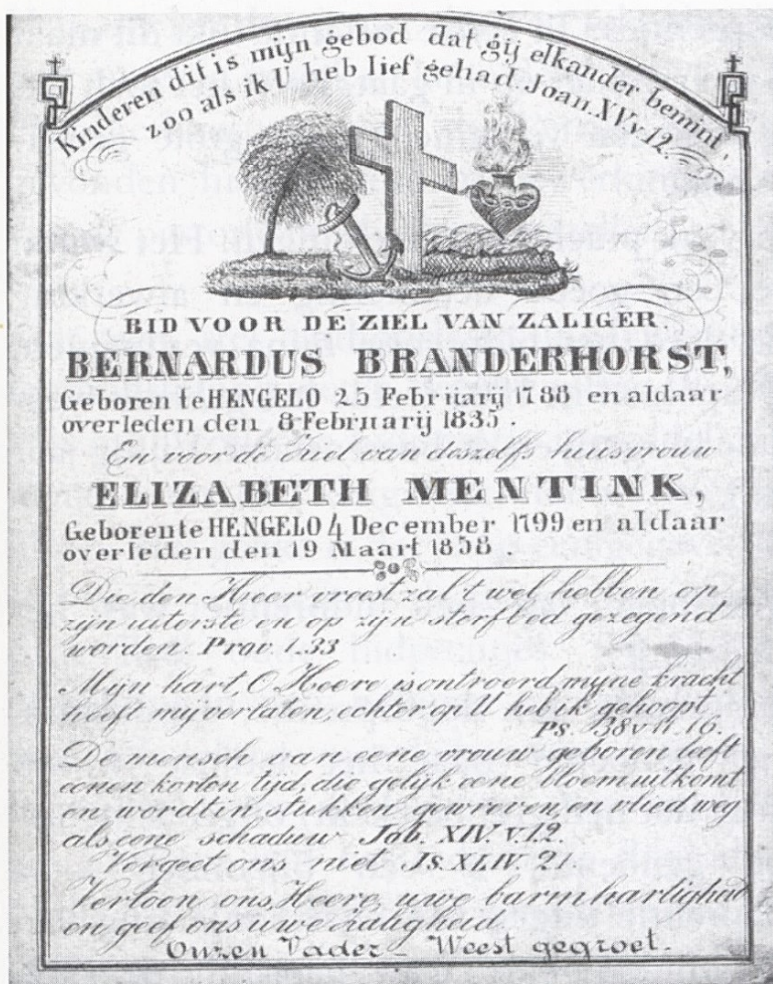 Kinderen dit is mijn gebod dat gij elkander bemint,
zoo als ik U heb lief gehad. Joan. XV v. 12.
BID VOOR DE ZIEL VAN ZALIGER.
BERNARDUS BRANDERHORST,
Geboren te HENGELO 25 Februarij 1788 en aldaar
overleden den 8 Februarij 1835.
En voor de Ziel van deszelfs huisvrouw
ELIZABETH MENTINK,
Geboren te HENGELO 4 December 1799 en aldaar
overleden den 19 Maart 1858.
Die den Heer vreest zal 't wel hebben op
zijn uiterste en op zijn sterfbed gezegend
worden. Prov. 1.33
Mijn hart, O Heere is ontroerd, myne kracht
heeft mij verlaten, echter op U heb ik gehoopt
Ps. 38 v 11. 16.
De mensch van eene vrouw geboren leeft
eenen korten tijd, die gelijk eene bloem uitkomt
en wordt in stukken gewreven, en vlied weg
als eene schaduw. Job. XIV. v. 1.2.
Vergeet ons niet Js. XLIV. 21.
Vertoon ons, Heere, uwe barmhartigheid
en geef ons uwe Zaligheid.
Onzen Vader - Weest gegroet.